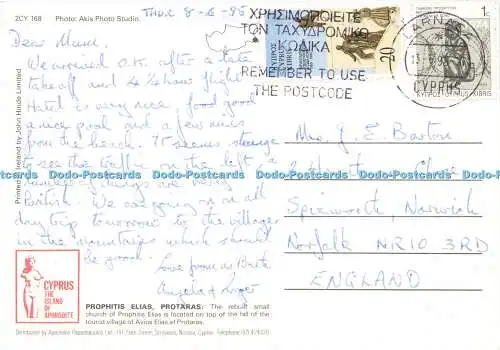 2CY 168
Photo: Akis Photo Studio.
Thur 8-6-95
Dear Mum,
We arrived O.K. after a late
take off and 4½ hour flight
Hotel is very nice, food good
a nice pool and a few mins
from the beach. It seems strange
to see the traffic on the left, a
number of things are very
British. We are going on an all
day trip tomorrow to the villages
in the mountains which should
be good.
Love from us Both
Angela & Roger
Printed in Ireland by John Hinde Limited
ΧΡΗΣΙΜΟΠΟΙΕΙΤΕ
ΤΟΝ ΤΑΧΥΔΡΟΜΙΚΟ
ΚΩΔΙΚΑ
REMEMBER TO USE
THE POSTCODE
20
LARNACA
CYPRUS
1c
KIBRIS
Mrs J. E. Barton
Close
Spixworth, Norwich
Norfolk NR10 3RD
ENGLAND
Dodo-Postcards.com Dodo-Postcards.com Dodo-Postcards.com
CYPRUS
THE
ISLAND
OF
APHRODITE
PROPHITIS ELIAS, PROTARAS: The rebuilt small
church of Prophitis Elias is located on top of the hill of the
tourist village of Ayios Elias at Protaras.